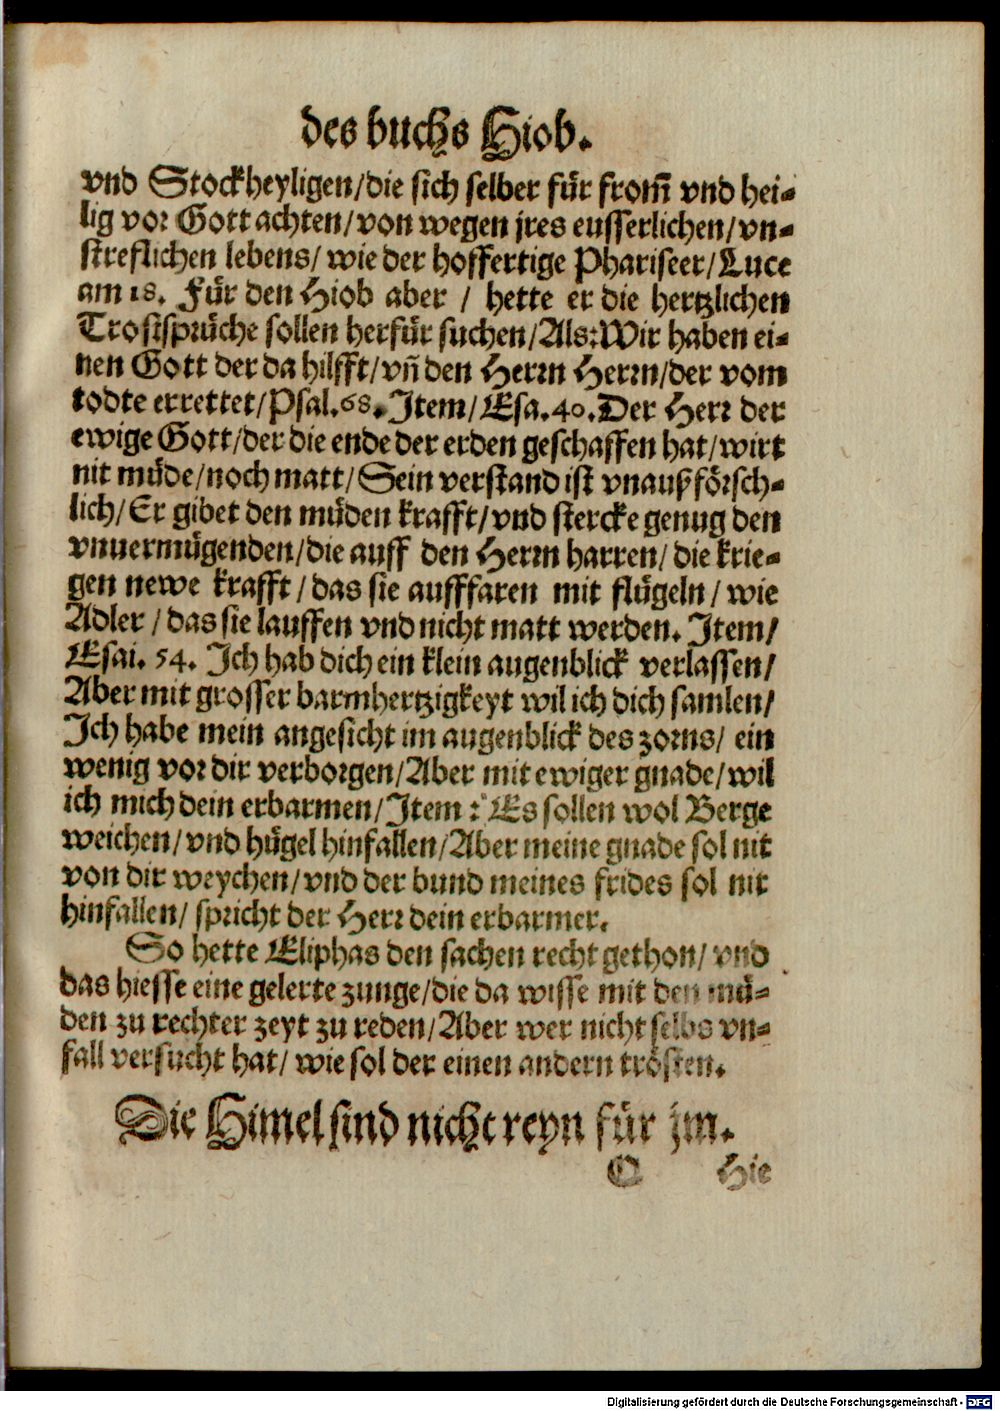 des buchs Hiob.
vnd Stockheyligen/die sich selber für from̃ vnd hei-
lig vor Gott achten/von wegen jres eusserlichen/vn-
streflichen lebens/ wie der hoffertige Phariseer/Luce
am 18. Für den Hiob aber / hette er die hertzlichen
Trostsprüche sollen herfür suchen/Als:Wir haben ei-
nen Gott der da hilfft/vñ den Herrn Herrn/der vom
todte errettet/Psal.68. Item/Esa.40.Der Herr der
ewige Gott/der die ende der erden geschaffen hat/wirt
nit müde/noch matt/Sein verstand ist vnaußförsch-
lich/Er gibet den müden krafft/vnd stercke genug den
vnuermügenden/die auff den Herrn harren/ die krie-
gen newe krafft / das sie aufffaren mit flügeln / wie
Adler / das sie lauffen vnd nicht matt werden. Item/
Esai. 54. Ich hab dich ein klein augenblick verlassen/
Aber mit grosser barmhertzigkeyt wil ich dich samlen/
Ich habe mein angesicht im augenblick des zorns/ ein
wenig vor dir verborgen/Aber mit ewiger gnade/wil
ich mich dein erbarmen/Item : Es sollen wol Berge
weichen/vnd hügel hinfallen/Aber meine gnade sol nit
von dir weychen/vnd der bund meines frides sol nit
hinfallen/ spricht der Herr dein erbarmer.
So hette Eliphas den sachen recht gethon/ vnd
das hiesse eine gelerte zunge/die da wisse mit den mü-
den zu rechter zeyt zu reden/Aber wer nicht selbs vn-
fall versucht hat/ wie sol der einen andern trösten.
Die Himel sind nicht reyn für jm.
O Hie
Digitalisierung gefördert durch die Deutsche Forschungsgemeinschaft - DFG